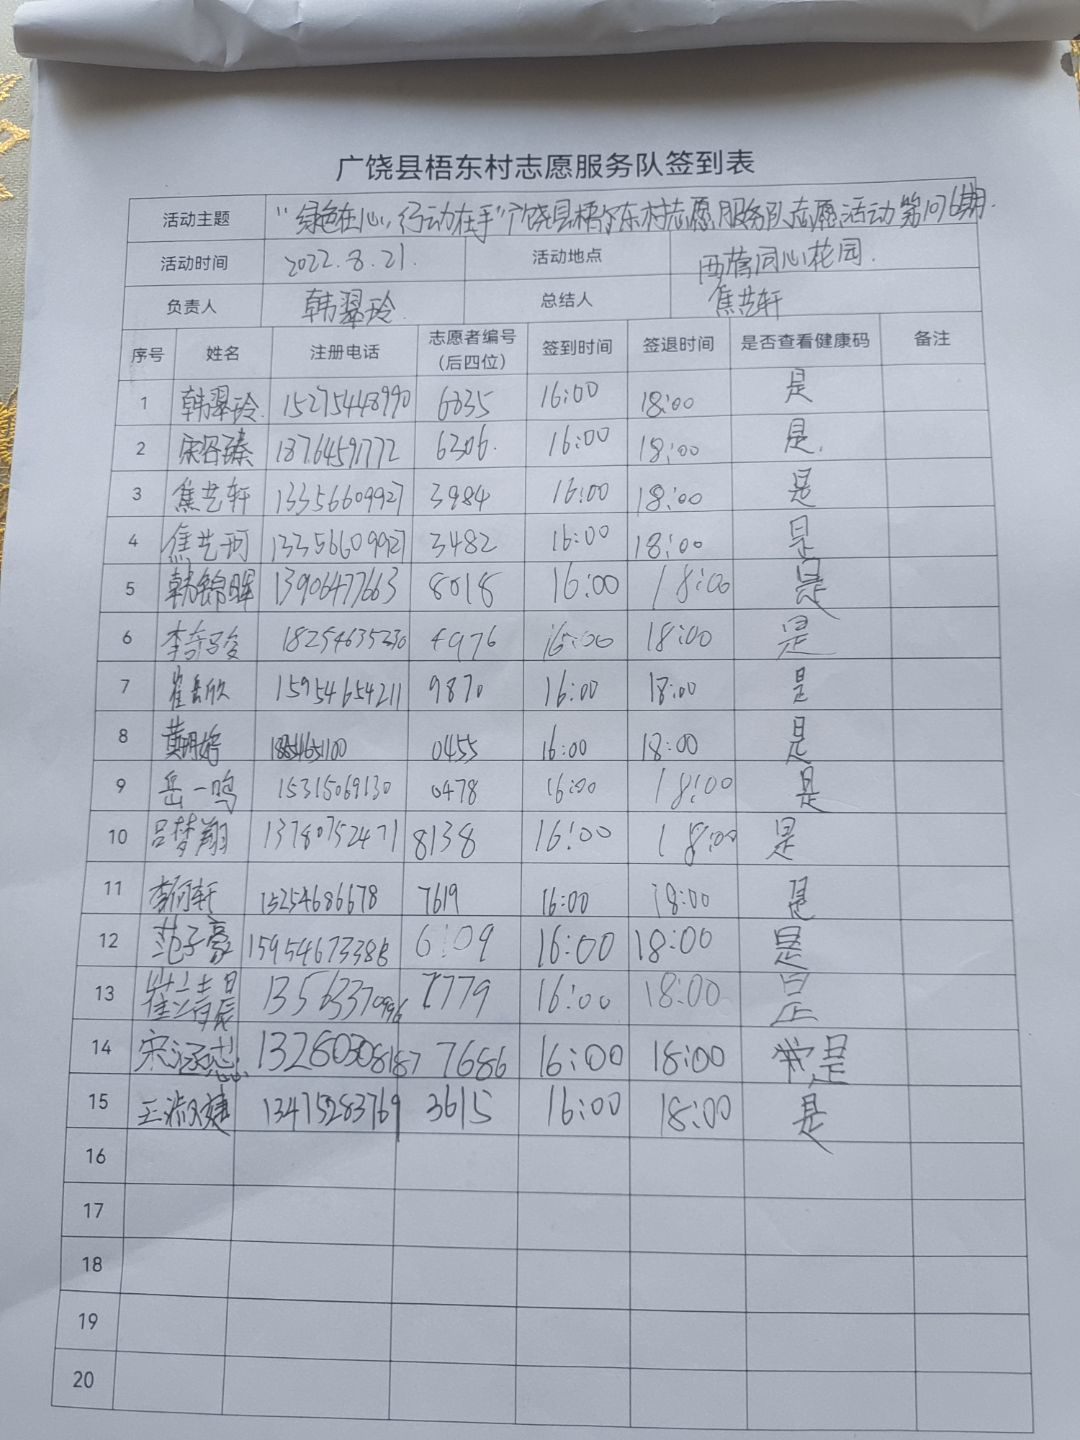 广饶县梧东村志愿服务队签到表
活动主题 “绿色在心,行动在手”广饶县梧东村志愿服务队志愿活动第1076期.
活动时间 2022.8.21. 活动地点 西蓓同心花园.
负责人 韩翠玲. 总结人 焦艺轩
序号 姓名 注册电话 志愿者编号(后四位) 签到时间 签退时间 是否查看健康码 备注
1 韩翠玲. 15275448990 6035 16:00 18:00 是
2 宋谷臻 18764591772 6306. 16:00 18:00 是.
3 焦艺轩 13356609927 3984 16:00 18:00 是
4 焦艺珂 13356609927 3482 16:00 18:00 是
5 韩锦晖 13906477663 8018 16:00 18:00 是
6 李奇骏 18254635330 4976 16:00 18:00 是
7 崔岳欣 15954654211 9870 16:00 18:00 是
8 0455 16:00 18:00 是
9 岳一鸣 15315069130 0478 16:00 18:00 是
10 吕梦翔 13780752471 8138 16:00 18:00 是
11 李轩 15254686678 7619 16:00 18:00 是
12 范子豪 6:09 16:00 18:00 是
13 崔 13563370996 1779 16:00 18:00 是
14 宋涵 13280308187 7686 16:00 18:00 是
15 王淑婕 13475283769 3615 16:00 18:00 是
16
17
18
19
20